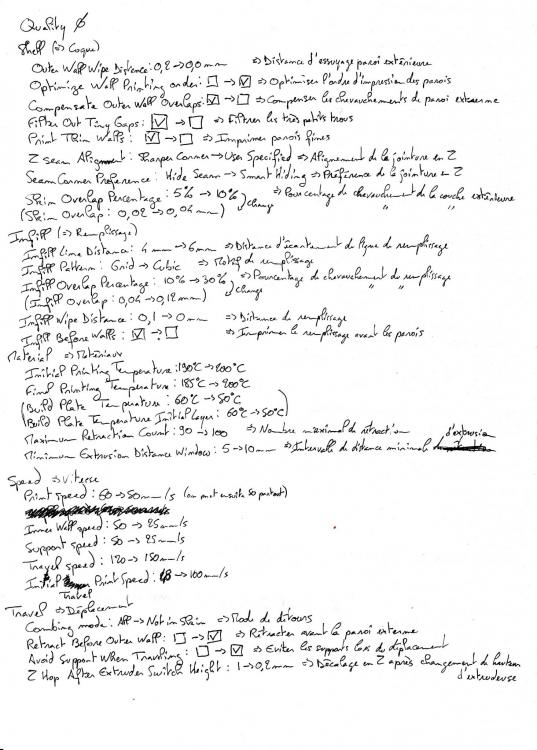 Quality ∅
Shell (=> Coque)
Outer Wall Wipe Distance : 0,2 -> 0,0 mm => Distance d'essuyage paroi extérieure
Optimize Wall Printing order : ☐ -> ☑ => Optimiser l'ordre d'impression des parois
Compensate Outer Wall Overlaps : ☑ -> ☐ => Compenser les chevauchements de paroi externe
Filter Out Tiny Gaps : ☑ -> ☐ => Filtrer les très petits trous
Print Thin Walls : ☑ -> ☐ => Imprimer parois fines
Z seam Alignment : Sharper Corner -> Use Specified => Alignement de la jointure en Z
Seam Corner Preference : Hide Seam -> Smart Hiding => Préférence de la jointure en Z
Skin Overlap Percentage : 5% -> 10% => Pourcentage de chevauchement de la couche extérieure
(Skin Overlap : 0,02 -> 0,04 mm) change " "
Infill (=> Remplissage)
Infill Line Distance : 4 mm -> 6 mm => Distance d'écartement de ligne de remplissage
Infill Pattern : Grid -> Cubic => Motif de remplissage
Infill Overlap Percentage : 10% -> 30% => Pourcentage de chevauchement du remplissage
(Infill overlap : 0,04 -> 0,12 mm) change " "
Infill Wipe Distance : 0,1 -> 0 mm => Distance de remplissage
Infill Before Walls : ☑ -> ☐ => Imprimer le remplissage avant les parois
Material => Matériaux
Initial Printing Temperature : 190°C -> 200°C
Final Printing Temperature : 185°C -> 200°C
(Build Plate Temperature : 60°C -> 50°C)
(Build Plate Temperature Initial Layer : 60°C -> 50°C)
Maximum Retraction Count : 90 -> 100 => Nombre maximal de rétraction
Minimum Extrusion Distance Window : 5 -> 10 mm => Intervalle de distance minimale d'extrusion
Speed => Vitesse
Print speed : 60 -> 50 mm/s (on met ensuite 50 partout)
Inner Wall speed : 50 -> 25 mm/s
Support speed : 50 -> 25 mm/s
Travel speed : 120 -> 150 mm/s
Initial Print Speed : -> 100 mm/s
Travel
Travel => Déplacement
Combing mode : All -> Not in Skin => Mode de détours
Retract Before Outer Wall : ☐ -> ☑ => Rétracter avant la paroi externe
Avoid Support When Traveling : ☐ -> ☑ => Eviter les supports lors du déplacement
Z Hop After Extruder Switch Height : 1 -> 0,2 mm => Décalage en Z après changement de hauteur
d'extrudeuse